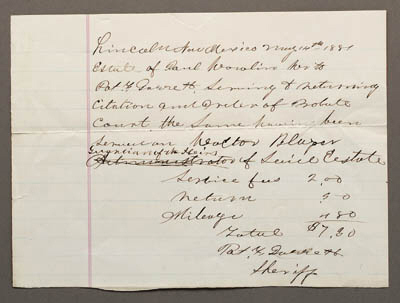 Lincoln New Mexico May 14th 1881
Estate of Paul Dr to
Pat F Garrett Serving & Returning
Citation and Order of Probate
Court the Same having been
Served on Blazer
Guardian of the Heirs
Administrator of Said Estate
Service fees 2.00
Return 50
Mileage 4 80
Total $7.30
Pat F Garrett
Sheriff